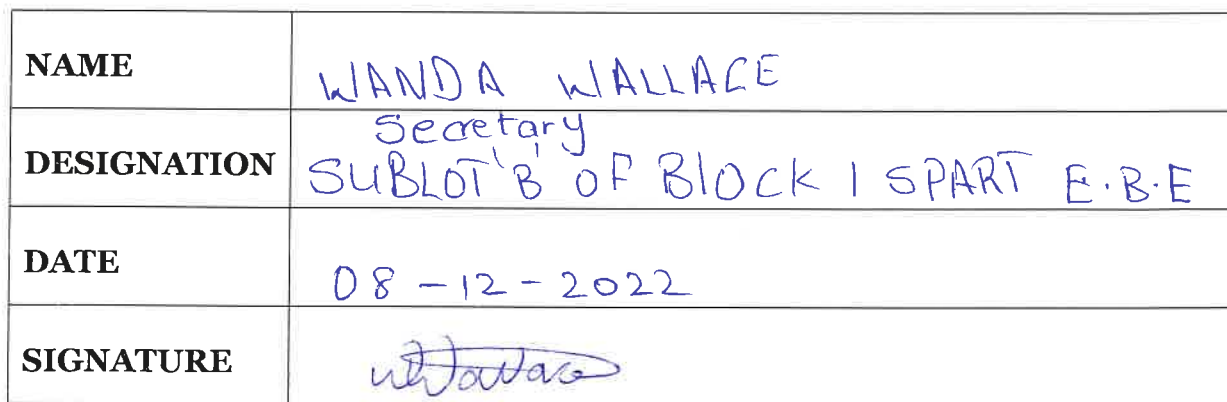 NAME WANDA WALLACE
Secretary
DESIGNATION SUBLOT 'B' OF BlOCK 1 SPART E.B.E
DATE 08-12-2022
SIGNATURE WWallace